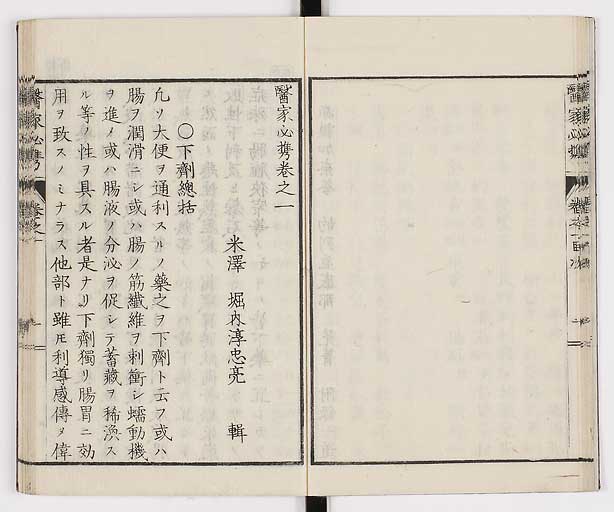 醫家必携卷之一
米澤 堀内淳忠亮 輯
〇下劑總括
凢ソ大便ヲ通利スルノ藥之ヲ下劑ト云フ或ハ
腸ヲ潤滑ニシ或ハ腸ノ筋纖維ヲ刺衝シ蠕動機
ヲ進メ或ハ腸液ノ分泌ヲ促シテ蓄藏ヲ稀渙ス
ル等ノ性ヲ具スル者是ナリ下劑獨リ腸胃ニ効
用ヲ致スノミナラス他部ト雖𪜈利導感傳ヲ偉
醫家必携
卷之一